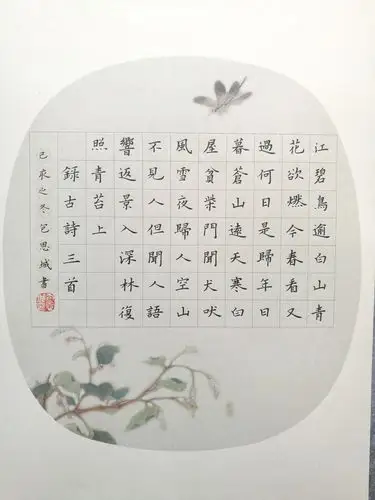 江碧鳥逾白山青
花欲燃今春看又
過何日是歸年日
暮蒼山遠天寒白
屋貧柴門聞犬吠
風雪夜歸人空山
不見人但聞人語
響返景入深林復
照青苔上
録古詩三首
己亥之冬包思書